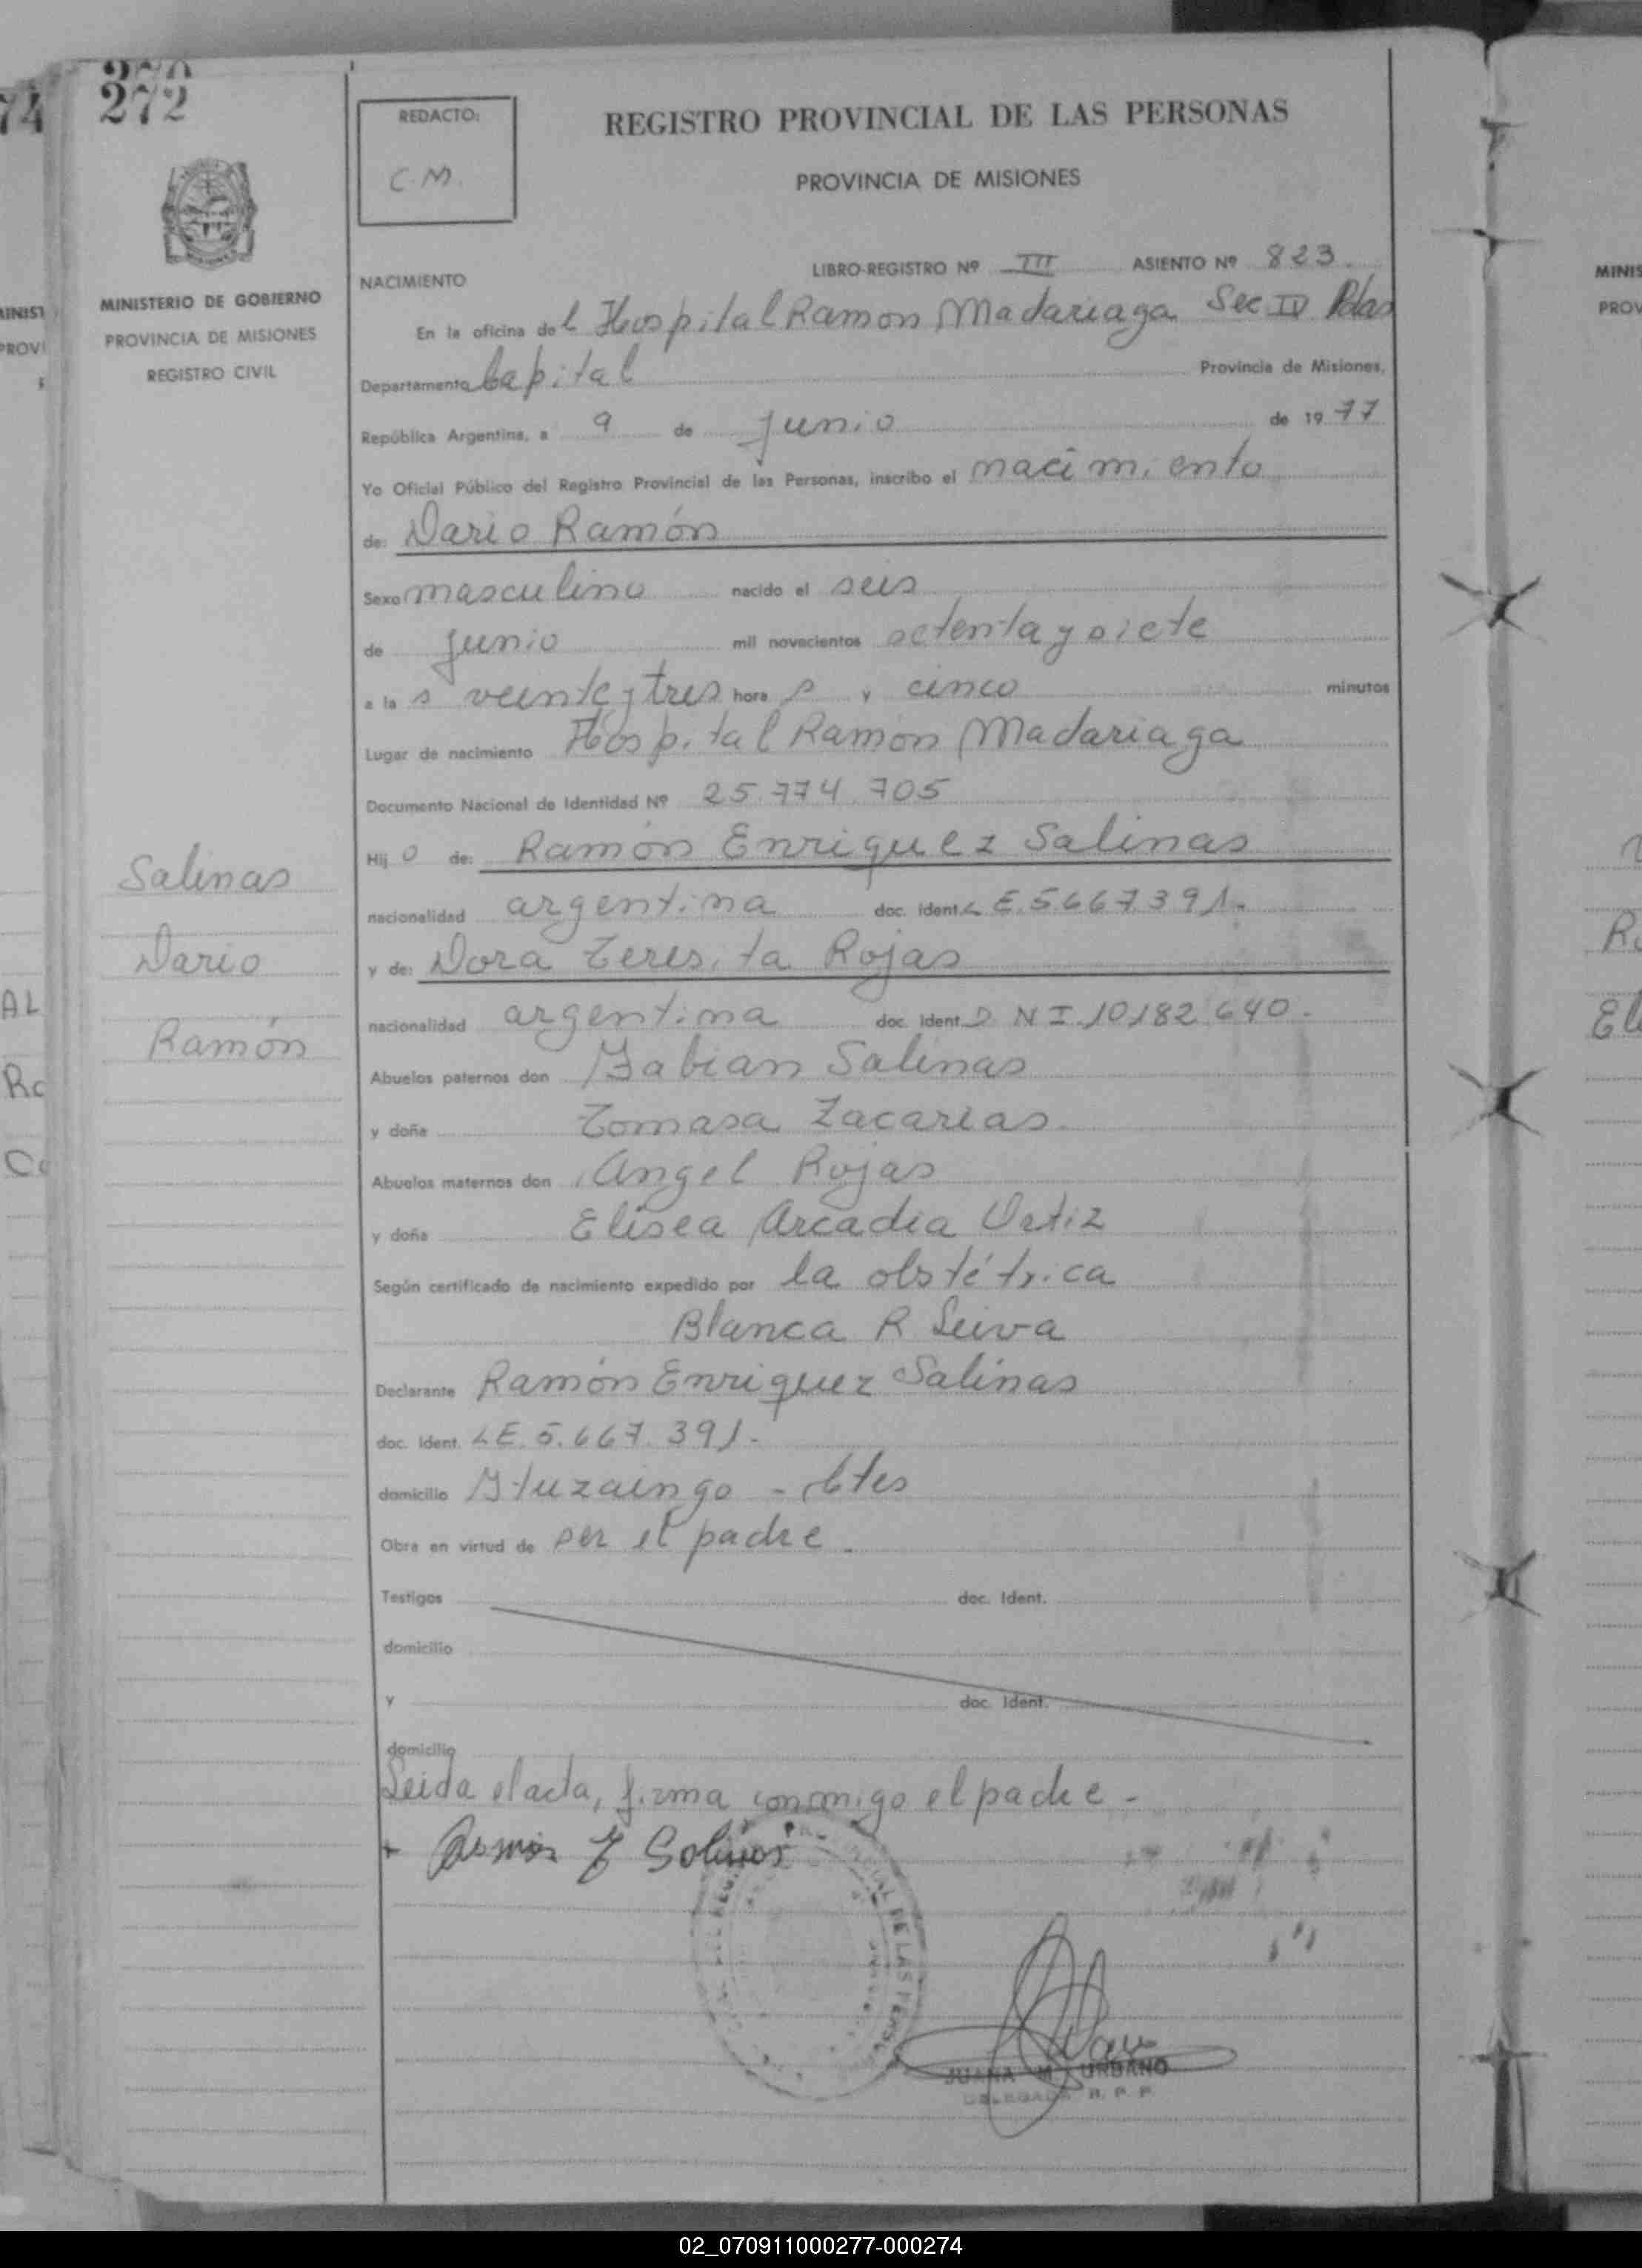 272
MINISTERIO DE GOBIERNO
PROVINCIA DE MISIONES
REGISTRO CIVIL
Salinas
Dario
Ramón
REDACTO:
C.M.
REGISTRO PROVINCIAL DE LAS PERSONAS
PROVINCIA DE MISIONES
LIBRO-REGISTRO Nº III ASIENTO Nº 823.
NACIMIENTO
En la oficina del Hospital Ramon Madariaga Sec IV Pdas
Departamento Capital Provincia de Misiones,
República Argentina, a 9 de junio de 1977
Yo Oficial Público del Registro Provincial de las Personas, inscribo el nacimiento
de: Dario Ramón
Sexo masculino nacido el seis
de junio mil novecientos setenta y siete
a las veinte y tres horas y cinco minutos
Lugar de nacimiento Hospital Ramón Madariaga
Documento Nacional de Identidad Nº 25.774.705
Hijo de: Ramón Enriquez Salinas
nacionalidad argentina doc. ident. L E. 5.667.391.
y de: Dora Teresita Rojas
nacionalidad argentina doc. ident. D N I. 10.182.640.
Abuelos paternos don Fabian Salinas
y doña Tomasa Zacarias.
Abuelos maternos don Angel Rojas
y doña Elisea Arcadia Ortiz
Según certificado de nacimiento expedido por la obstétrica
Blanca R Leiva
Declarante Ramón Enriquez Salinas
doc. Ident. LE. 5.667.391.
domicilio Ituzaingo - Ctes
Obra en virtud de ser el padre.
Testigos doc. Ident.
domicilio
y doc. Ident.
domicilio
Leida el acta, firma conmigo el padre -
+ Ramón E Salinas
DE LAS
JUANA M. URBANO
DELEGADA R. P. P.
02_070911000277-000274